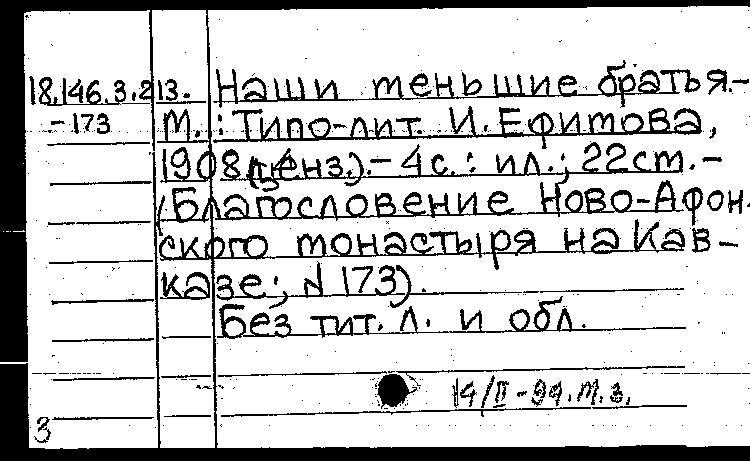 18.146.3.213. Наши меньшие братья.-
-173 М.: Типо-лит. И. Ефимова,
1908 (ценз.).- 4с.: ил.; 22см.-
(Благословение Ново-Афон-
ского монастыря на Кав-
казе; N 173).
Без тит. л. и обл.
14/II-94. м.з.
3